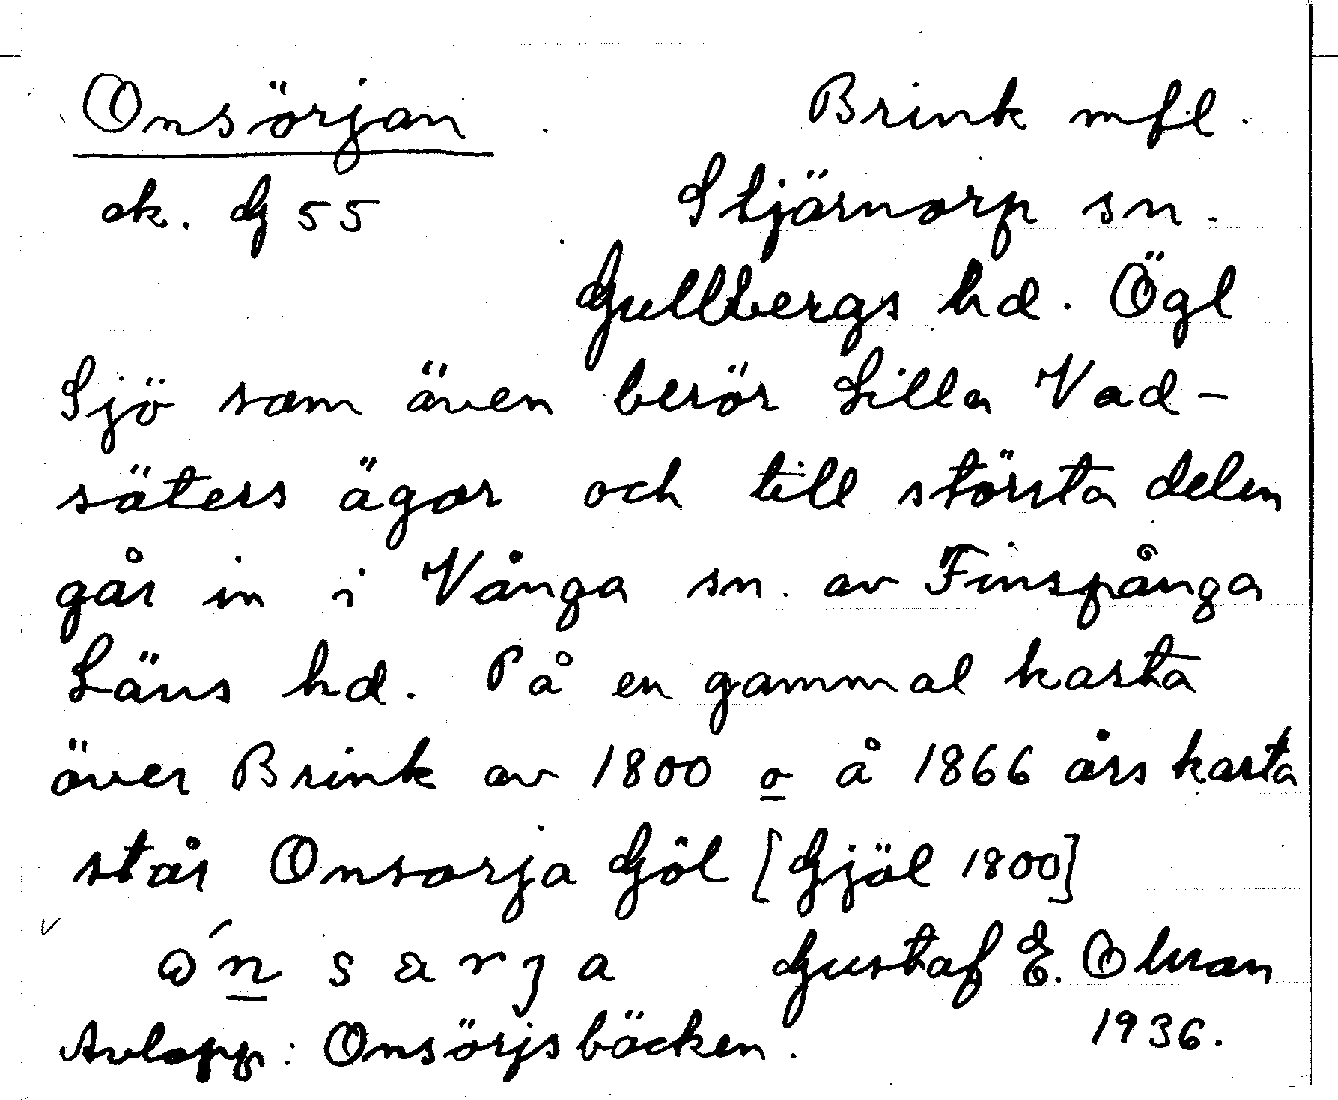 Onsörjan
Brink mfl.
ek. dg 55
Stjärnorp sn.
Gullbergs hd. Ögl
Sjö som även berör Lilla Vad-
säters ägor och till största delen
går in i Vånga sn. av Finspånga
Läns hd. På en gammal karta
över Brink av 1800 o å 1866 års karta
står Onsorja Göl [Gjöl 1800]
Gustaf E. Ohman
1936.
Avlopp: Onsörjsbäcken.